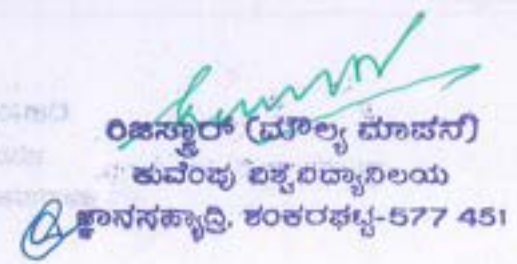 ರಿಜಿಸ್ಟ್ರಾರ್ (ಮೌಲ್ಯ ಮಾಪನ)
ಕುವೆಂಪು ವಿಶ್ವವಿದ್ಯಾನಿಲಯ
ಜ್ಞಾನಸಹ್ಯಾದ್ರಿ, ಶಂಕರಘಟ್ಟ-577 451